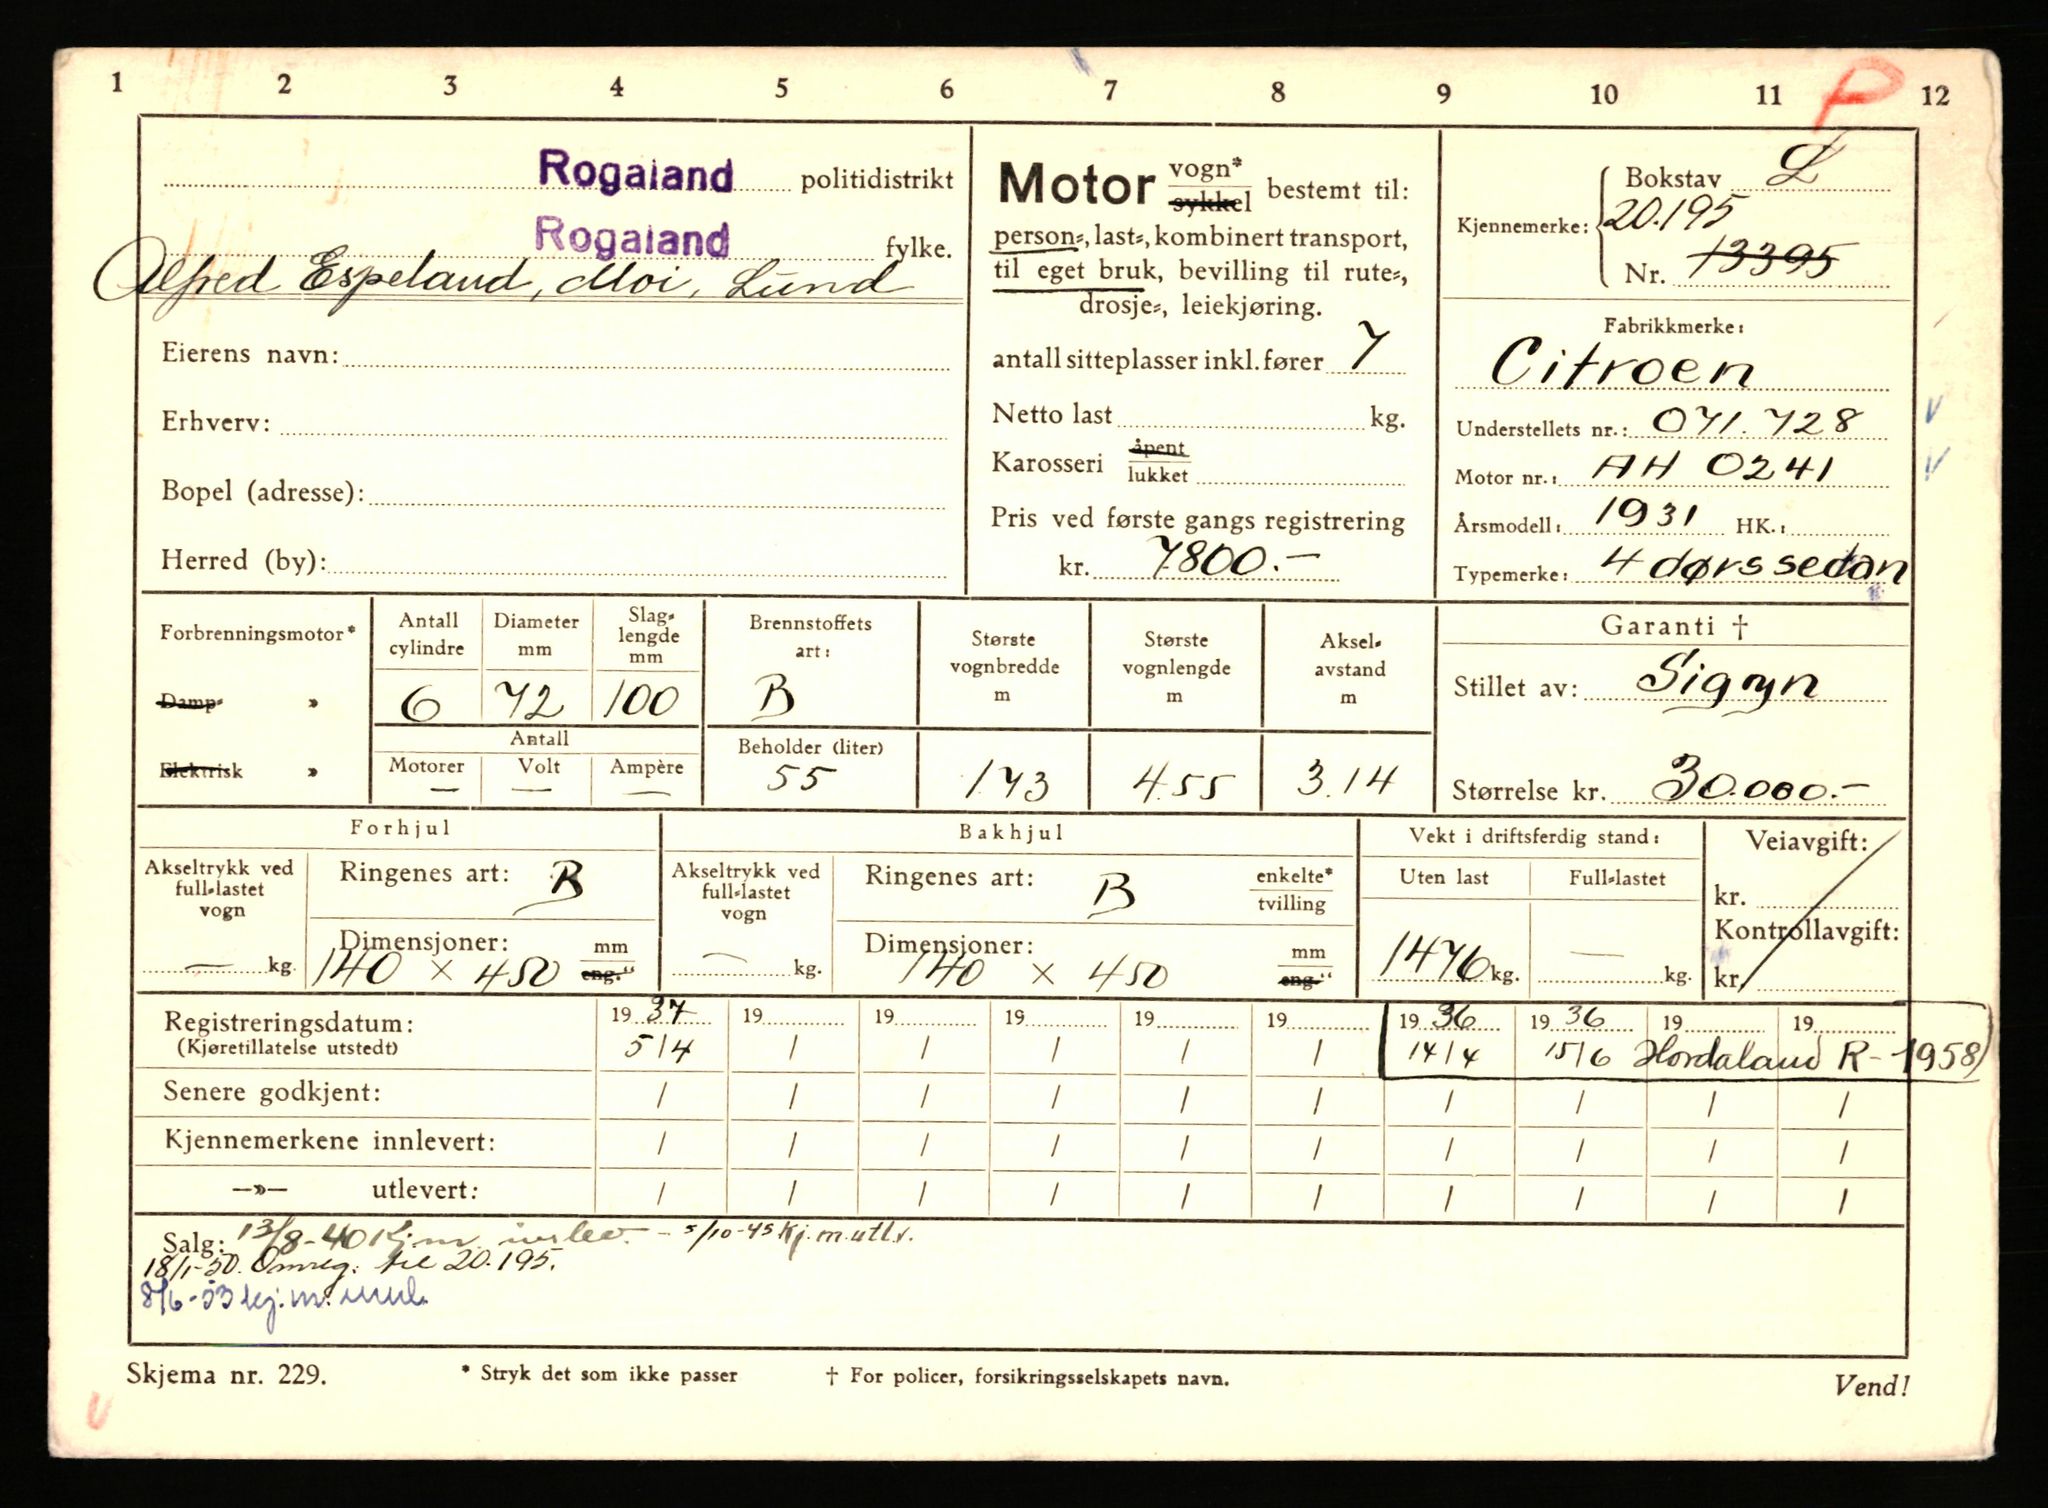 1 2 3 4 5 6 7 8 9 10 11 P 12
Rogaland politidistrikt
Rogaland fylke.
Alfred Espeland, Moi, Lund
Eierens navn:
Erhverv:
Bopel (adresse):
Herred (by):
Motor vogn* sykkel bestemt til:
person-, last-, kombinert transport,
til eget bruk, bevilling til rute-,
drosje-, leiekjøring.
antall sitteplasser inkl. fører 7
Netto last kg.
Karosseri åpent lukket
Pris ved første gangs registrering
kr. 7800.-
Kjennemerke: Bokstav L
20.195
Nr. 13395
Fabrikkmerke:
Citroen
Understellets nr.: 071.728
Motor nr.: AH 0241
Årsmodell: 1931 HK.:
Typemerke: 4 dørs sedan
Forbrenningsmotor*
Damp- »
Elektrisk »
Antall cylindre
6
Diameter mm
72
Slag-lengde mm
100
Antall
Motorer Volt Ampère
— — —
Brennstoffets art:
B
Beholder (liter)
55
Største vognbredde m
1.73
Største vognlengde m
4.55
Aksel-avstand m
3.14
Garanti †
Stillet av: Sigyn
Størrelse kr. 30.000.-
Forhjul
Akseltrykk ved full-lastet vogn
— kg.
Ringenes art: B
Dimensjoner: mm eng."
140 x 450
Bakhjul
Akseltrykk ved full-lastet vogn
— kg.
Ringenes art: B enkelte* tvilling
Dimensjoner: mm eng."
140 x 450
Vekt i driftsferdig stand:
Uten last Full-lastet
1476 kg. — kg.
Veiavgift:
kr.
Kontrollavgift:
kr.
Registreringsdatum: 19 37 19 19 19 19 19 19 36 19 36 19 19
(Kjøretillatelse utstedt) 5/4 / / / / / 14/4 15/6 Hordaland R-1958
Senere godkjent: / / / / / / / / / /
Kjennemerkene innlevert: / / / / / / / / / /
—»— utlevert: / / / / / / / / / /
Salg: 13/8-40 Kj.m. innlev. - 5/10-45 Kj.m.utlv.
18/1-50. Omreg. til 20.195.
8/6-53 kj.m. innl.
Skjema nr. 229. * Stryk det som ikke passer † For policer, forsikringsselskapets navn. Vend!